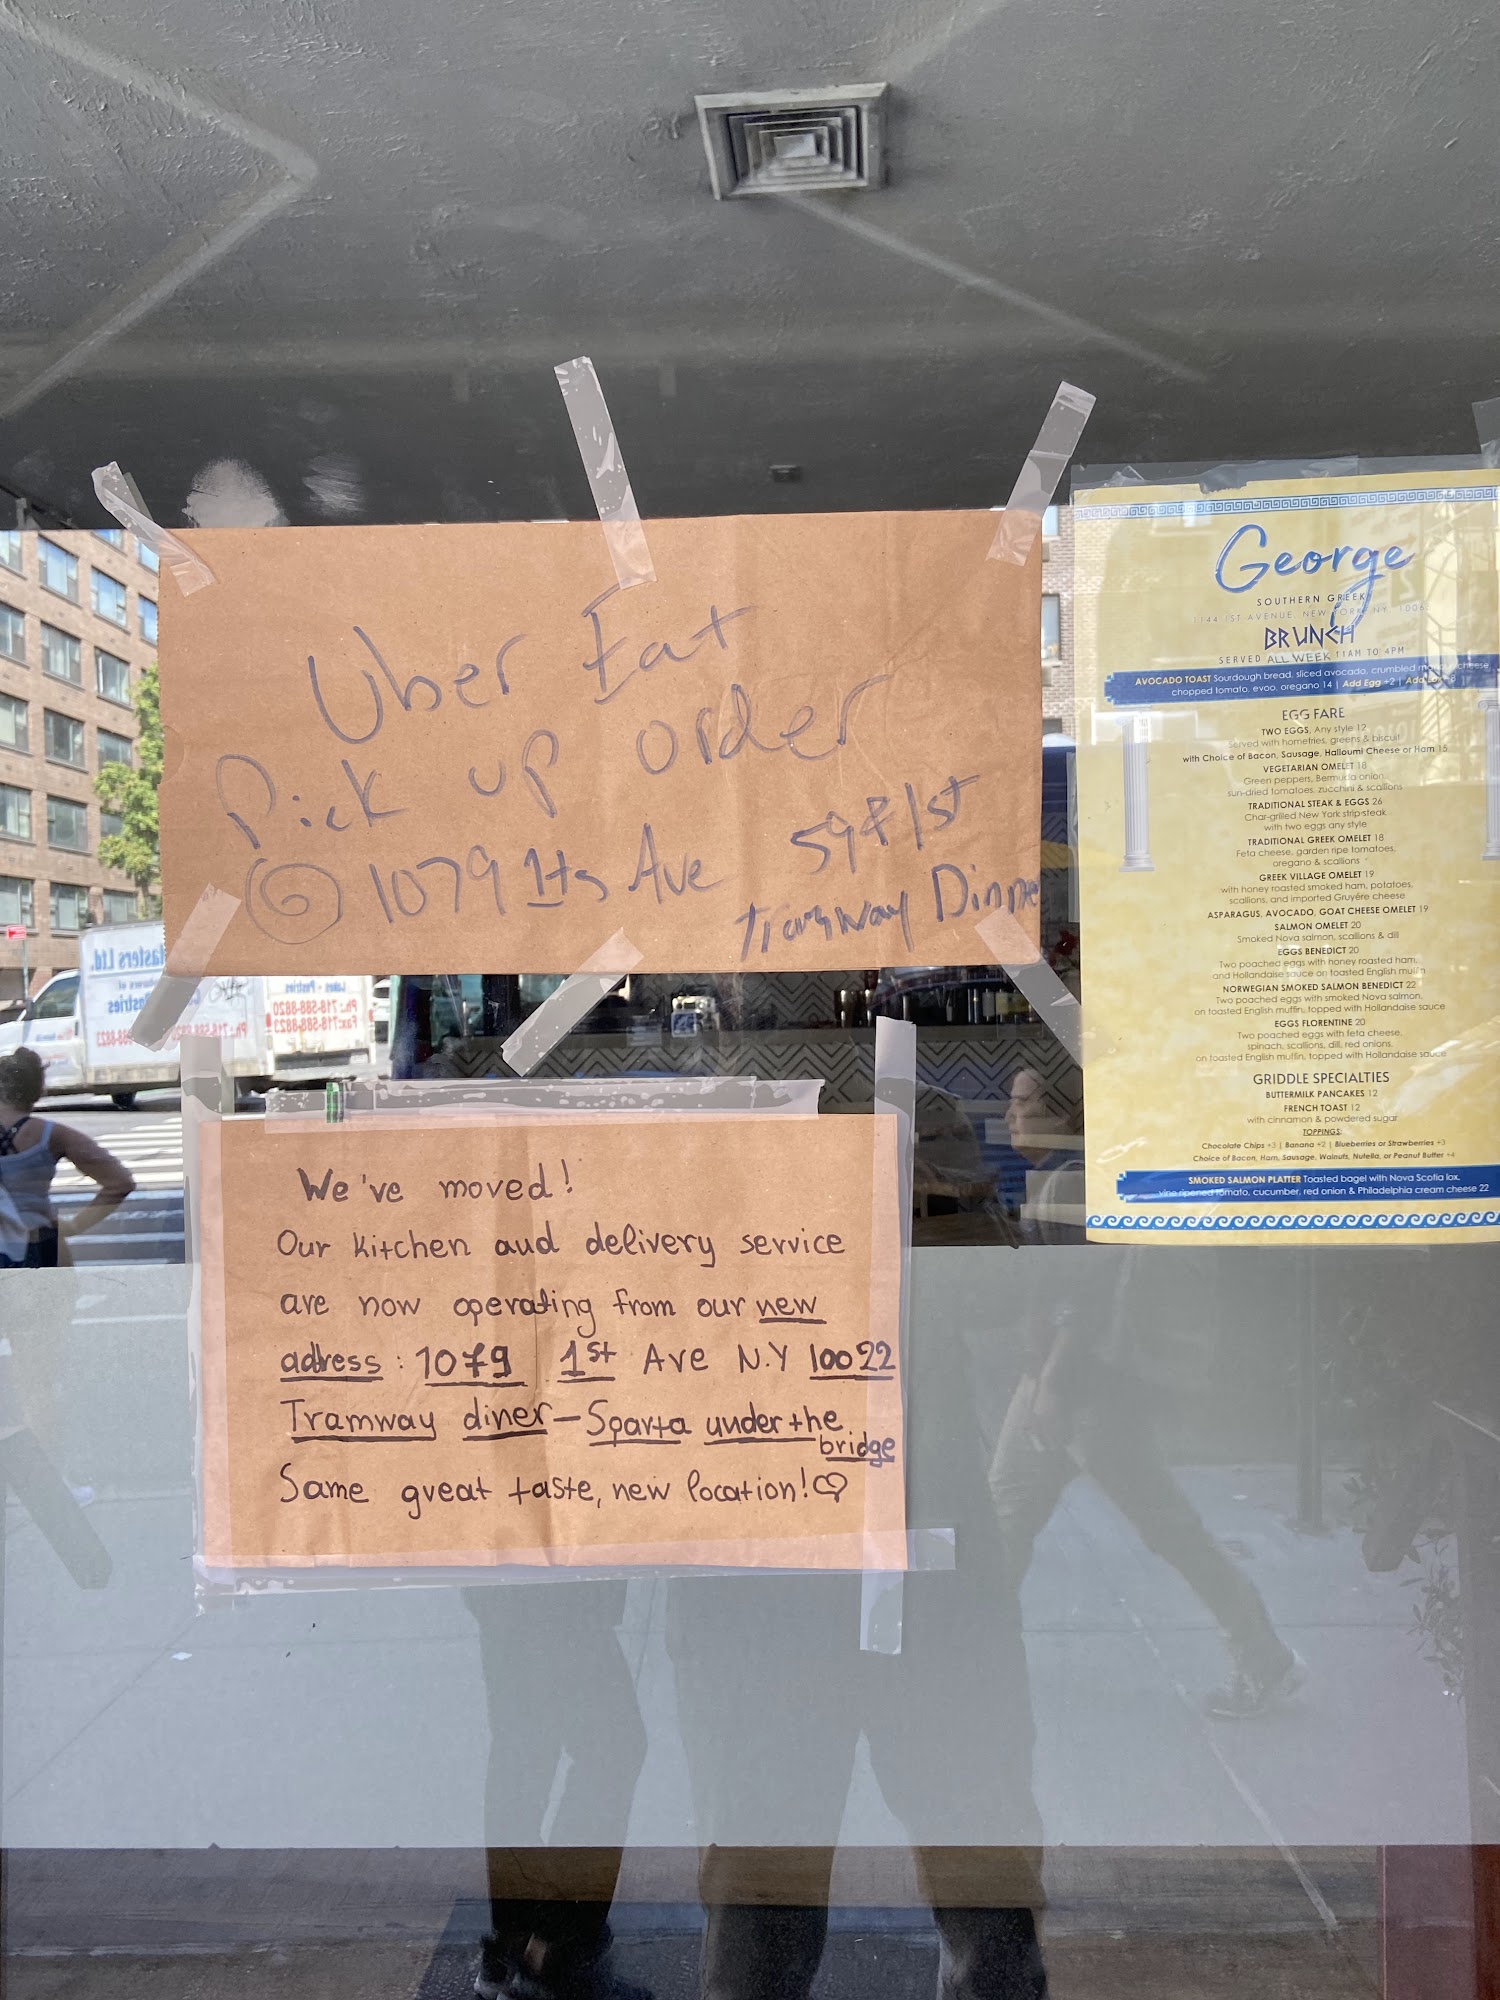 Uber Eat
Pick up order
@ 1079 1ts Ave
59 & 1st
Tramway Dinne
We've moved!
Our kitchen and delivery service
are now operating from our new
adress: 1079 1st Ave N.Y 10022
Tramway diner - Sparta under the
bridge
Same great taste, new location!♡
George
SOUTHERN GREEK
1144 1ST AVENUE, NEW YORK, NY, 10065
BRUNCH
SERVED ALL WEEK 11AM TO 4PM
AVOCADO TOAST Sourdough bread, sliced avocado, crumbled cheese,
chopped tomato, evoo, oregano 14 | Add Egg +2 | Add
EGG FARE
TWO EGGS, Any style 12
Served with homefries, greens & biscuit
with Choice of Bacon, Sausage, Halloumi Cheese or Ham 15
VEGETARIAN OMELET 18
Green peppers, Bermuda onion,
sun-dried tomatoes, zucchini & scallions
TRADITIONAL STEAK & EGGS 26
Char-grilled New York strip steak
with two eggs any style
TRADITIONAL GREEK OMELET 18
Feta cheese, garden ripe tomatoes,
oregano & scallions
GREEK VILLAGE OMELET 19
with honey roasted smoked ham, potatoes,
scallions, and imported Gruyére cheese
ASPARAGUS, AVOCADO, GOAT CHEESE OMELET 19
SALMON OMELET 20
Smoked Nova salmon, scallions & dill
EGGS BENEDICT 20
Two poached eggs with honey roasted ham,
and Hollandaise sauce on toasted English muffin
NORWEGIAN SMOKED SALMON BENEDICT 22
Two poached eggs with smoked Nova salmon,
on toasted English muffin, topped with Hollandaise sauce
EGGS FLORENTINE 20
Two poached eggs with feta cheese,
spinach, scallions, dill, red onions,
on toasted English muffin, topped with Hollandaise sauce
GRIDDLE SPECIALTIES
BUTTERMILK PANCAKES 12
FRENCH TOAST 12
with cinnamon & powdered sugar
TOPPINGS:
Chocolate Chips +3 | Banana +2 | Blueberries or Strawberries +3
Choice of Bacon, Ham, Sausage, Walnuts, Nutella, or Peanut Butter +4
SMOKED SALMON PLATTER Toasted bagel with Nova Scotia lox,
vine ripened tomato, cucumber, red onion & Philadelphia cream cheese 22
Pastries
Ph.: 718-588-8820
Fax: 718-588-8823